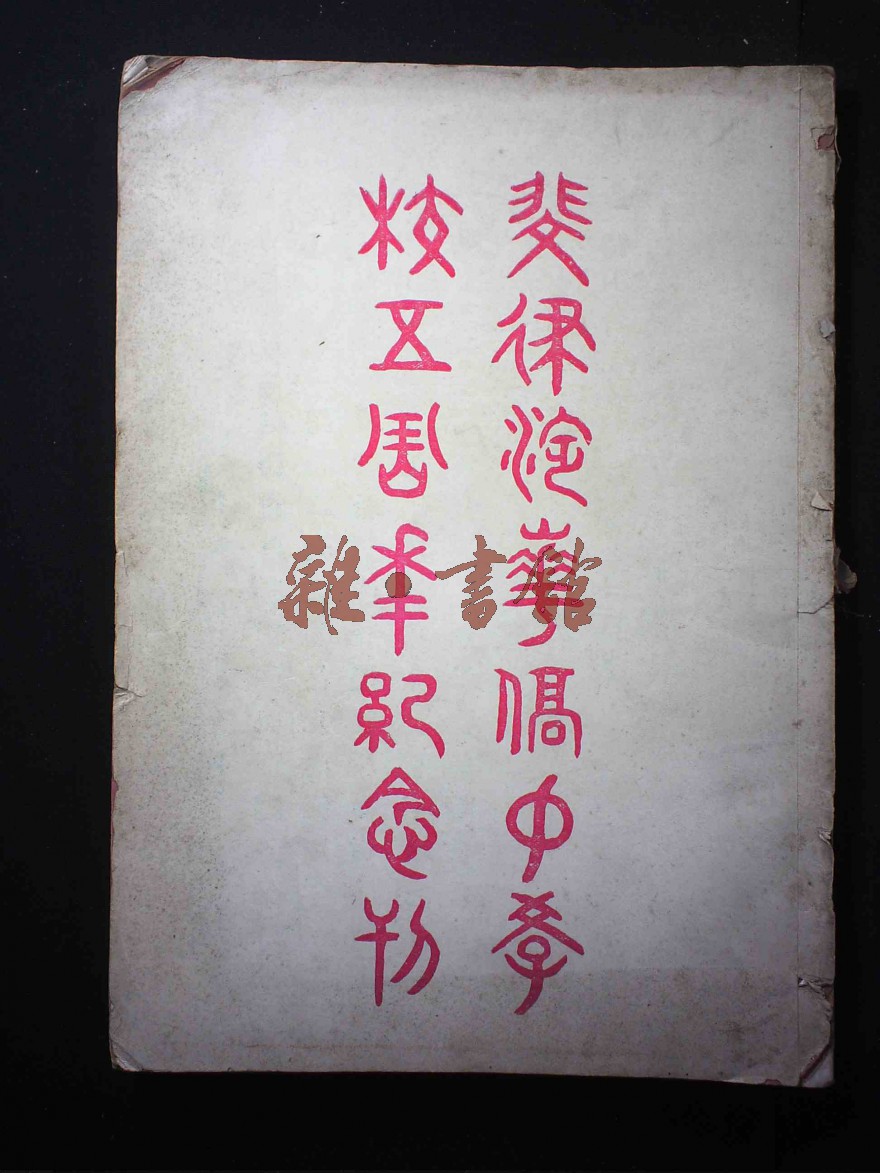 斐律淀華僑中學
校五周年紀念刊
雜·書館